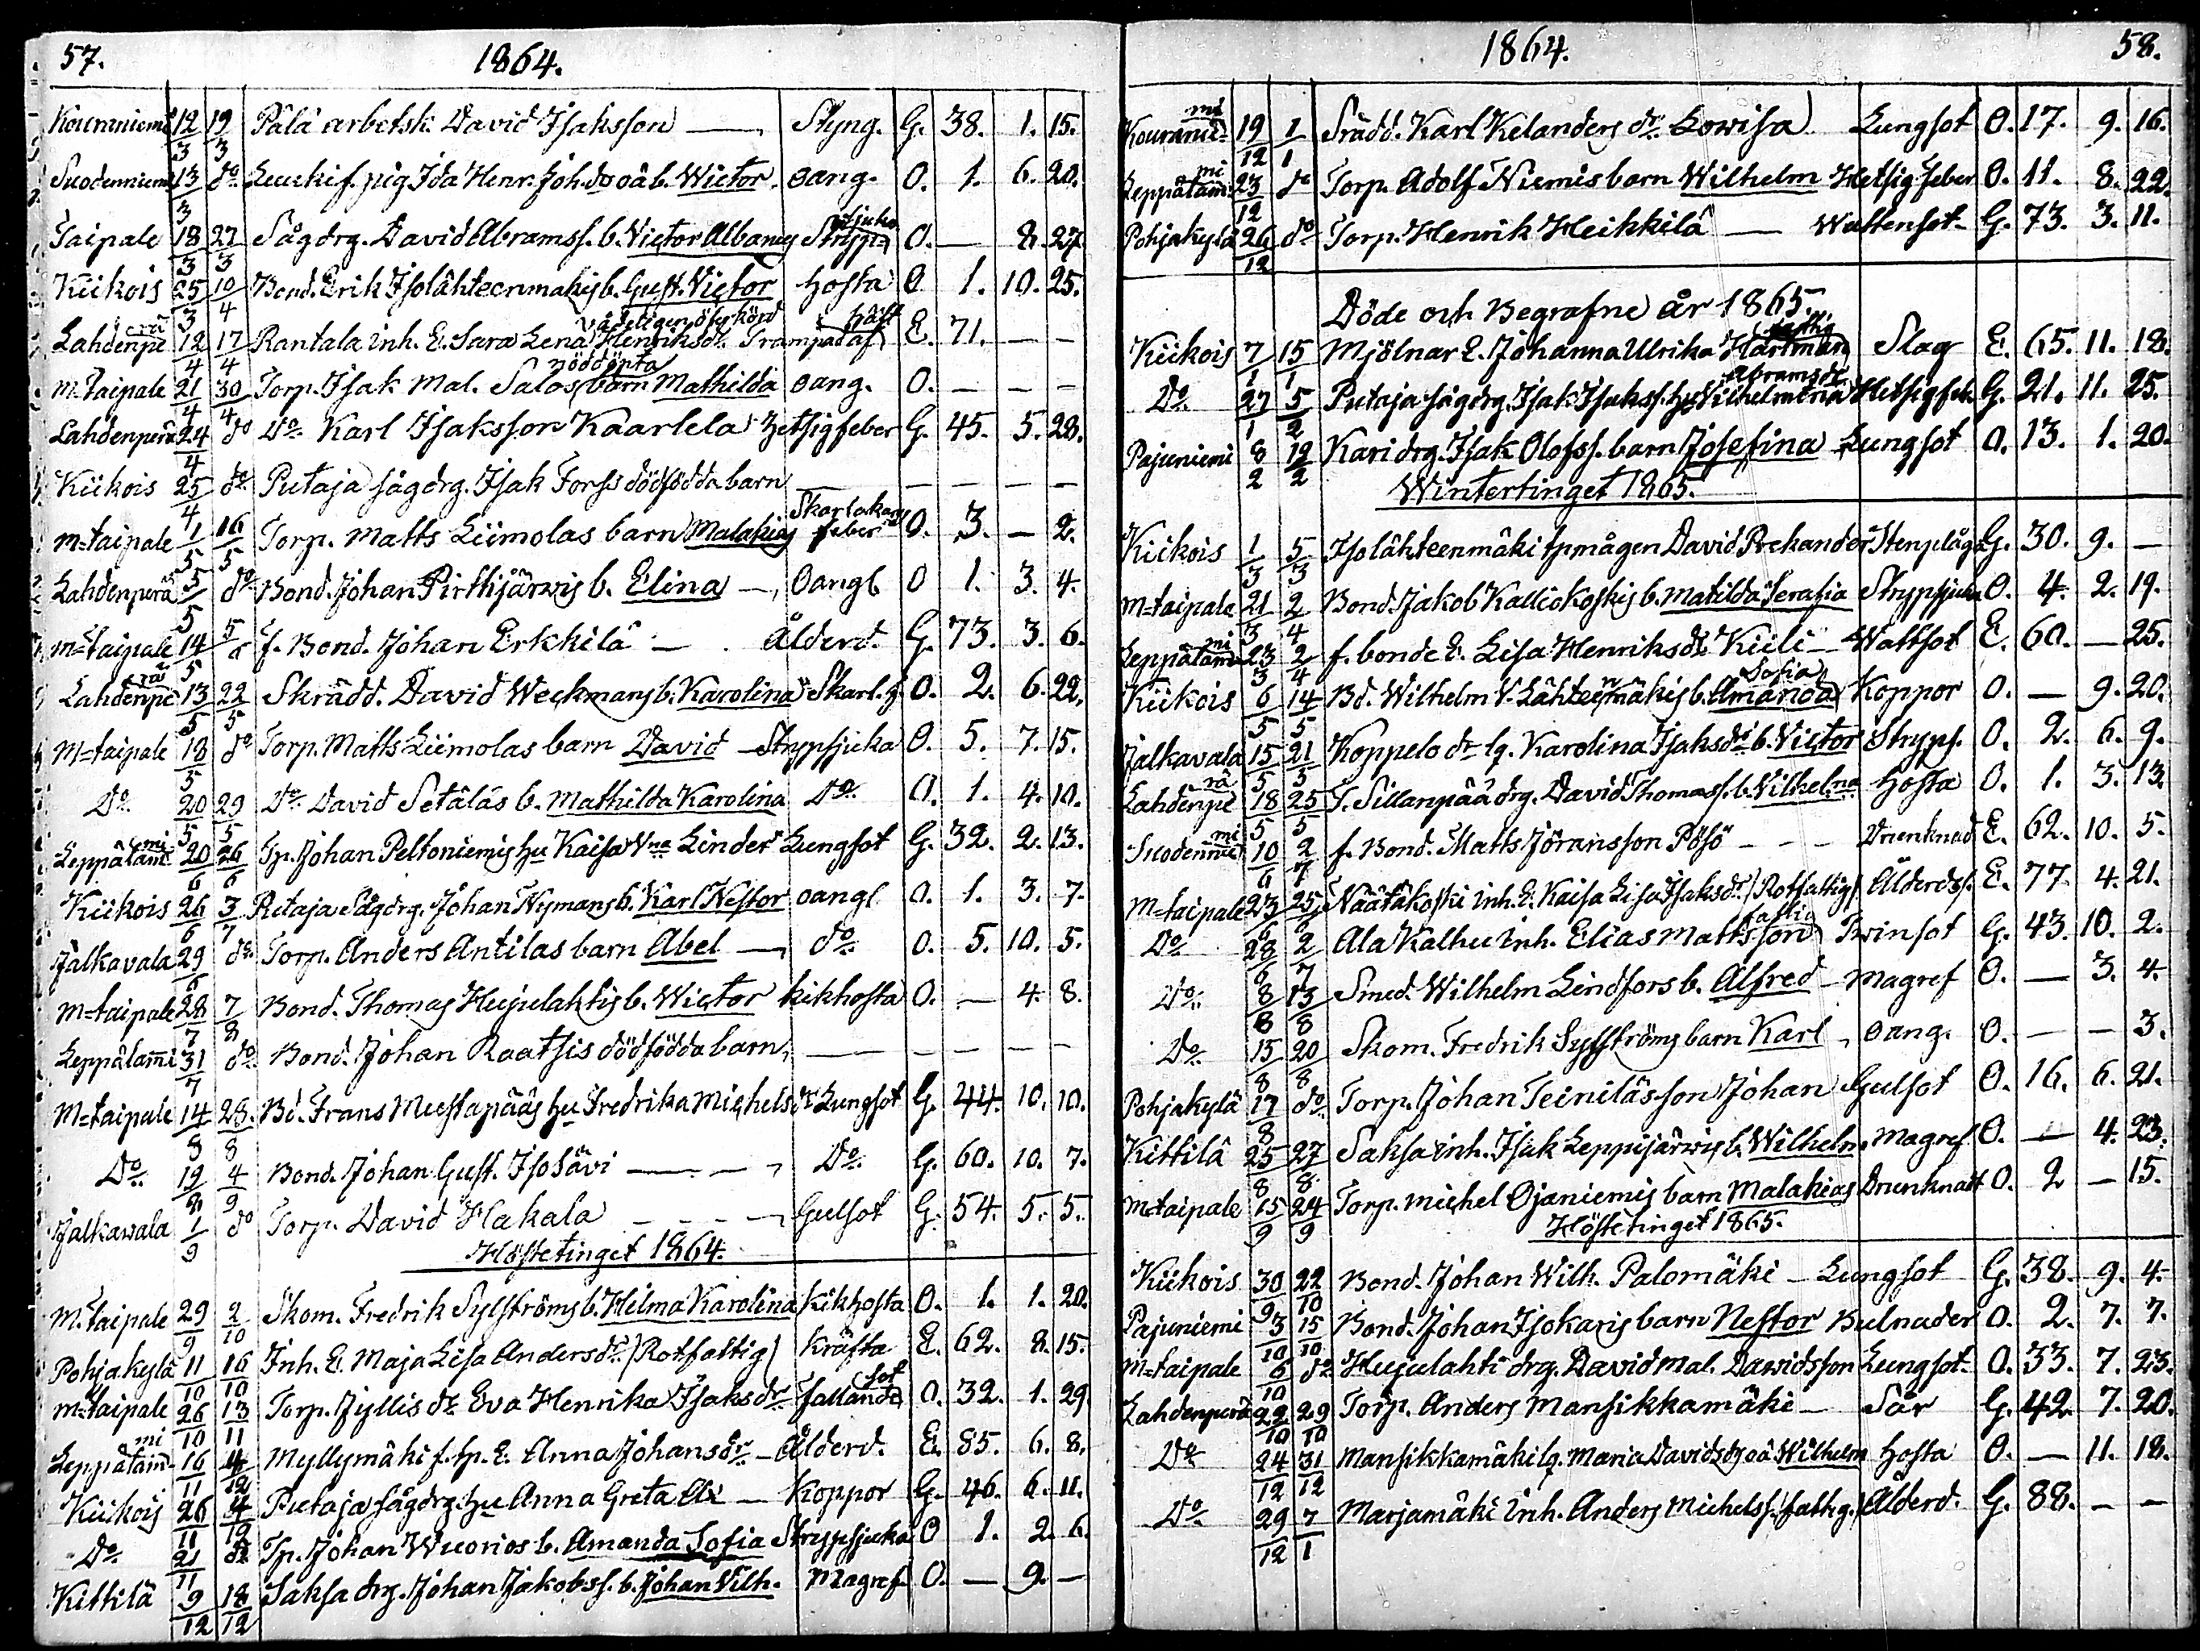 57. 1864.
Kouraniemi 12/3 19/3 Pälä arbetsk. David Isaksson — Styng. G. 38. 1. 15.
Suodenniemi 13/3 do Luuki f. pig Ida Henr. Joh.dr oä b. Wictor. oang. O. 1. 6. 20.
Taipale 18/3 27/3 Sågdrg. David Abramss. b. Victor Albanus Strypsjuka O. — 8. 27.
Kiikois 25/3 10/4 Bond. Erik Isolähteenmäkis b. Gust. Victor hosta O 1. 10. 25.
Lahdenperä 12/4 17/4 Rantala inh. E. Sara Lena Henriksdr vådeligen ihjel Trampad af häst E. 71. — —
M-taipale 21/4 30/4 Torp. Isak Mal. Salos nöddöpta barn Mathilda oang. O. — — —
Lahdenperä 24/4 do Do Karl Isaksson Kaarlela hetsigfeber G. 45. 5. 28.
Kiikois 25/4 do Putaja sågdrg. Isak Forss dödfödda barn — — — —
M-taipale 1/5 16/5 Torp. Matts Liimolas barn Malakias Skarlakans feber O. 3. — 2.
Lahdenperä 5/5 do Bond. Johan Pirttijärvis b. Elina — oangl O 1. 3. 4.
M-taipale 14/5 5/6 f. Bond. Johan Erkkilä — Ålderd. G. 73. 3. 6.
Lahdenperä 13/5 22/5 Skrädd. David Weckmans b. Karolina Skarl. f. O. 2. 6. 22.
M-taipale 18/5 do Torp. Matts Liimolas barn David — Strypsjuka O. 5. 7. 15.
Do 20/5 29/5 Do David Setäläs b. Mathilda Karolina Do O. 1. 4. 10.
Leppälammi 20/6 26/6 Tp. Johan Peltoniemis hu Kaisa Vna Linder Lungsot G. 32. 2. 13.
Kiikois 26/6 3/7 Putaja Sågdrg. Johan Nymans b. Karl Nestor oangl O. 1. 3. 7.
Jalkavala 29/6 do Torp. Anders Antilas barn Abel — do O. 5. 10. 5.
M-taipale 28/7 7/8 Bond. Thomas Hujulahtis b. Wictor kikhosta O. — 4. 8.
Leppälammi 31/7 do Bond. Johan Raatsis dödfödda barn, — — — —
M-taipale 14/8 28/8 Bd. Frans Mustapääs hu Fredrika Michelsdr Lungsot G. 44. 10. 10.
Do 19/8 4/9 Bond. Johan Gust. Isosävi — Do G. 60. 10. 7.
Jalkawala 1/9 do Torp. David Hakala — Gulsot G. 54. 5. 5.
Höstetinget 1864.
M-taipale 29/9 2/10 Skom. Fredrik Sylströms b. Hilma Karolina kikhosta O. 1. 1. 20.
Pohjakylä 11/10 16/10 Inh. E. Maja Lisa Andersdr (Rotfattig) Kräfta E. 62. 8. 15.
M-taipale 26/10 13/11 Torp. Jyllis dr Eva Henrika Isaksdr fallandesot O. 32. 1. 29.
Leppälammi 16/11 4/12 Myllymäki f. tp. E. Anna Johansdr — Ålderd. E. 85. 6. 8.
Kiikois 26/11 4/12 Putaja sågdrg. hu Anna Greta — Koppor G. 46. 6. 11.
Do 21/11 do Tp. Johan Wuorios b. Amanda Sofia Strypsjuka O 1. 2. 6.
Kittilä 9/12 18/12 Saksa drg. Johan Jakobss. b. Johan Vilh. Magref. O. — 9. —
1864. 58.
Kouraniemi 19/12 1/1 Srädd. Karl Kelanders dr. Lowisa Lungsot O. 17. 9. 16.
Leppälammi 23/12 do Torp. Adolf Niemis barn Wilhelm Hetsig feber O. 11. 8. 22.
Pohjakylä 26/12 do Torp. Henrik Heikkilä — Wattensot G. 73. 3. 11.
Döde och Begrafne år 1865.
Kiikois 7/1 15/1 Mjölnar E. Johanna Ulrika Hartman fattig Slag E. 65. 11. 18.
Do 27/1 5/2 Putaja sågdrg. Isak Isakss. hu Vilhelmina Abramsdr Hetsig feb. G. 21. 11. 25.
Pajuniemi 8/2 12/2 Kari drg. Isak Olofss. barn Josefina Lungsot O. 13. 1. 20.
Wintertinget 1865.
Kiikois 1/3 5/3 Isolähteenmäki tpmågen David Prekander Stenplåga G. 30. 9. —
M-taipale 21/3 2/4 Bond. Jakob Kalliokoskis b. Matilda Serafia Strypsjuka O. 4. 2. 19.
Leppälammi 23/3 2/4 f. bonde E. Lisa Henriksdr Kiili — Wattsot E. 60. — 25.
Kiikois 6/5 14/5 Bd. Wilhelm V. Lähteenmäkis b. Amanda Sofia Koppor O. — 9. 20.
Jalkavala 15/5 21/5 Koppelo dr lq. Karolina Isaksdr b. Victor Stryps. O. 2. 6. 9.
Lahdenperä 18/5 25/5 T. Sillanpää drg. David Thomass. b. Vilhelmna hosta O. 1. 3. 13.
Suodenniemi 10/6 2/7 f. Bond. Matts Jöransson Pösö — Drunknad E. 62. 10. 5.
M-taipale 23/6 25/6 Näätäkoski inh. E. Kaisa Lisa Isaksdr (Rotfattig) Ålderds. E. 77. 4. 21.
Do 28/6 2/7 Ala Kalhu inh. Elias Mattsson fattig Twinsot G. 43. 10. 2.
Do 8/8 13/8 Smed. Wilhelm Lindfors b. Alfred — Magref O. — 3. 4.
Do 15/8 20/8 Skom. Fredrik Sylströms barn Karl, oang. O. — — 3.
Pohjakylä 17/8 do Torp. Johan Teiniläs son Johan Gulsot O. 16. 6. 21.
Kittilä 25/8 27/8 Saksa inh. Isak Leppijärwis b. Wilhelm. Magref O. — 4. 23.
M-taipale 15/9 24/9 Torp. Michel Ojaniemis barn Malakias Drunknatt O. 2 — 15.
Höstetinget 1865.
Kiikois 30/9 22/10 Bond. Johan Wilh. Palomäki — Lungsot G. 38. 9. 4.
Pajuniemi 3/10 15/10 Bond. Johan Isokaris barn Nestor Bulnader O. 2. 7. 7.
M-taipale 6/10 do Hujulahti drg. David Mal. Davidsson Lungsot O. 33. 7. 23.
Lahdenperä 22/10 29/10 Torp. Anders Mansikkamäki — Sår G. 42. 7. 20.
Do 24/12 31/12 Mansikkamäki lq. Maria Davidsdrs oä Wilhelm hosta O. — 11. 18.
Do 29/12 7/1 Marjamäki inh. Anders Michelss. (fattg.) Ålderd. G. 88. — —